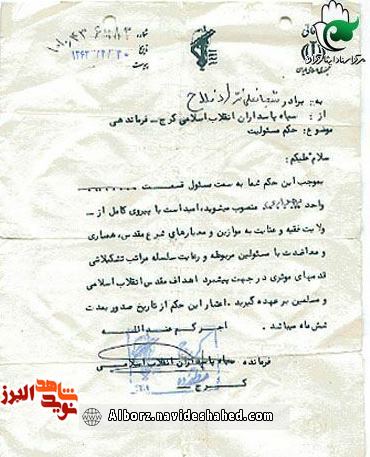 شماره
تاریخ ۱۳۶۲/۱۲/۲۰
پیوست
به : برادر شعبانعلی نژاد فلاح
از : سپاه پاسداران انقلاب اسلامی کرج ـ فرماندهی
موضوع: حکم مسئولیت
سلام علیکم :
بموجب این حکم شما به سمت مسئول قسمت
واحد منصوب میشوید، امید است با پیروی کامل از ـ
ولایت فقیه و عنایت به موازین و معیارهای شرع مقدس، همیاری
و معاضدت با مسئولین مربوطه و رعایت سلسله مراتب تشکیلاتی
قدمهای موثری در جهت پیشبرد اهداف مقدس انقلاب اسلامی و
مسلمین بر عهده گیرید. اعتبار این حکم از تاریخ صدور بمدت
شش ماه میباشد .
اجرکم عندالله
فرمانده سپاه پاسداران انقلاب اسلامی
کرج
نوید شاهد البرز
Alborz.navideshahed.com